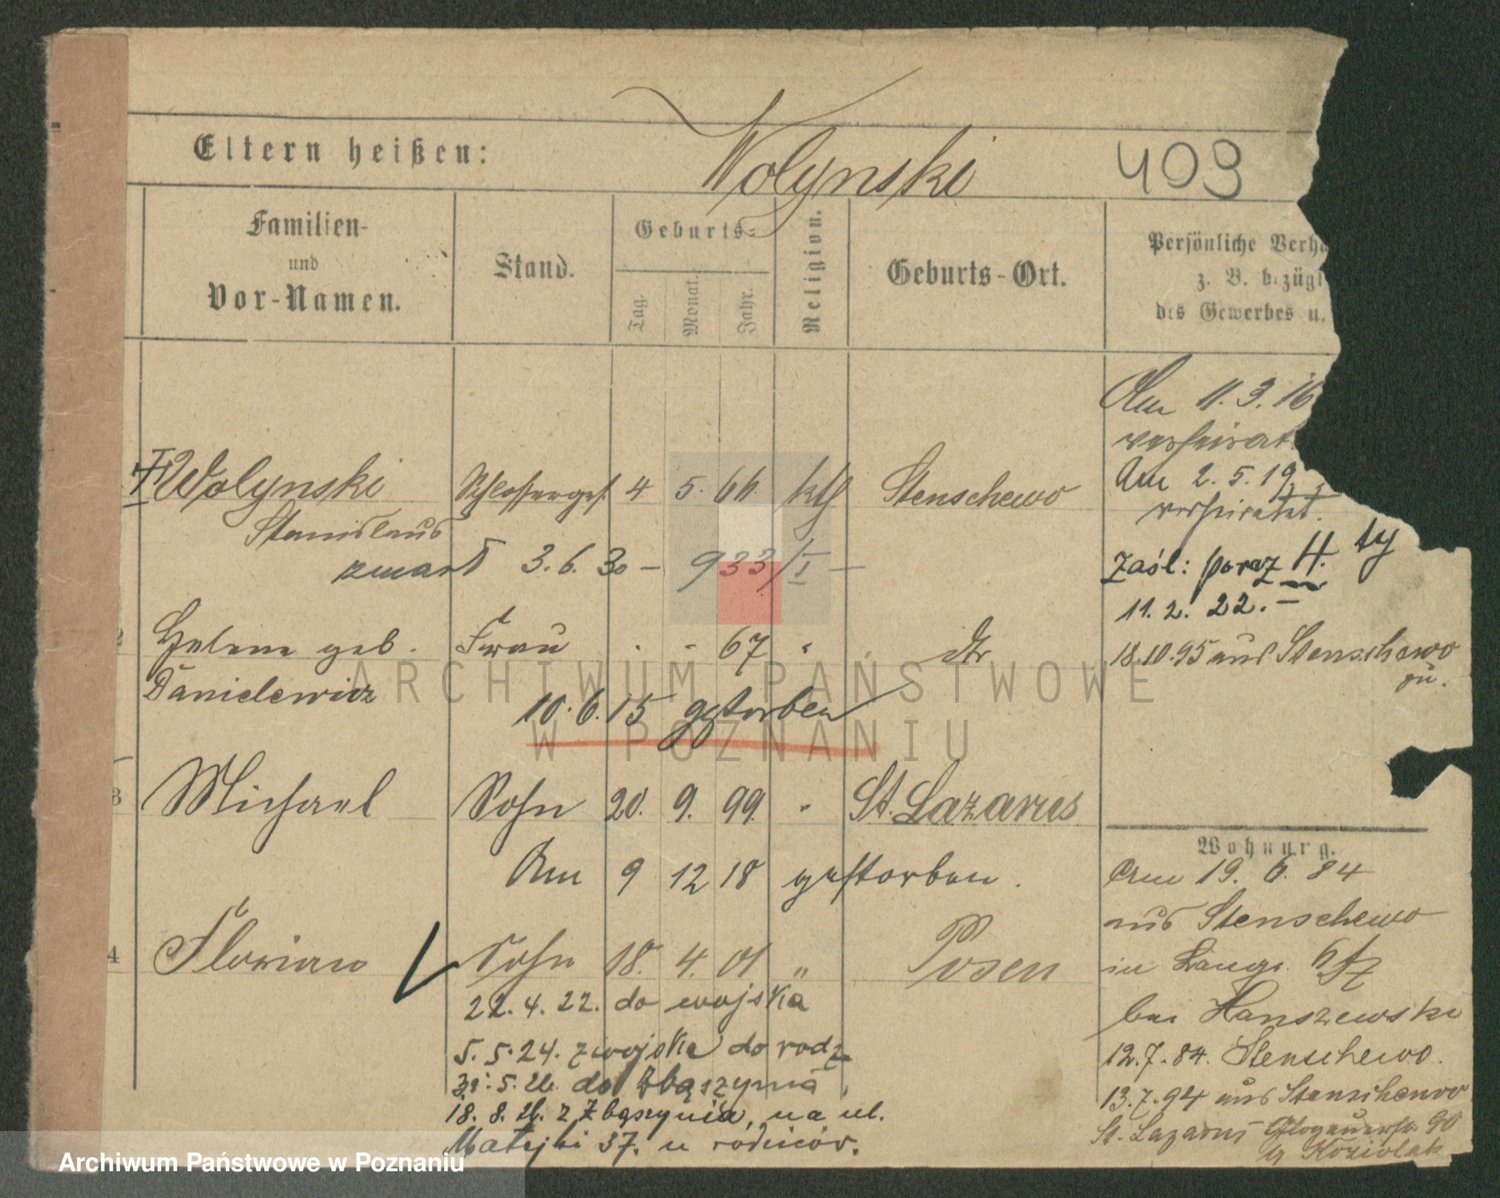 Eltern heißen:
Wolynski
409
Familien-
und
Vor-Namen.
Stand.
Geburts-
Tag.
Monat.
Jahr.
Religion.
Geburts-Ort.
Persönliche Verh
z. B. bezügl
des Gewerbes u.
Am 11.3.16
verheirat
Am 2.5.19
verheiratet.
Wolynski Schlosserges. 4 5. 66 ktl Stenschewo
Stanislaus
zmarł 3.6.30 - 933/I -
Zaśl: poraz II. ty
11.2.22.-
2 Helene geb. Frau . - 67 " dtr
Danielewicz
18.10.95 aus Stenschewo
zu.
10.6.15 gestorben
3 Michael Sohn 20. 9. 99. " St. Lazarus
Am 9 12 18 gestorben.
4 Florian Sohn 18. 4. 01 " Posen
22.4.22. do wojska
5.5.24. z wojska do rodz
31.5.26. do Zbąszynia,
18.8.26. z Zbąszynia, na ul.
Matejki 37. u rodziców.
Wohnung.
Am 19. 6. 84
aus Stenschewo
in Lange.
bei Hanszewski
12.7.84. Stenschewo.
13.7.94 aus Stenschewo
St. Lazarus Glogauerstr. 90
Koziolek
ARCHIWUM PAŃSTWOWE
W POZNANIU
Archiwum Państwowe w Poznaniu